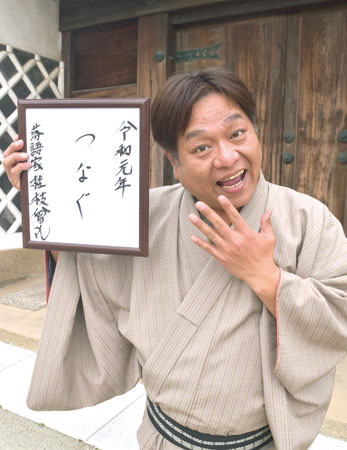 令和元年
つなぐ
落語家桂枝曾丸